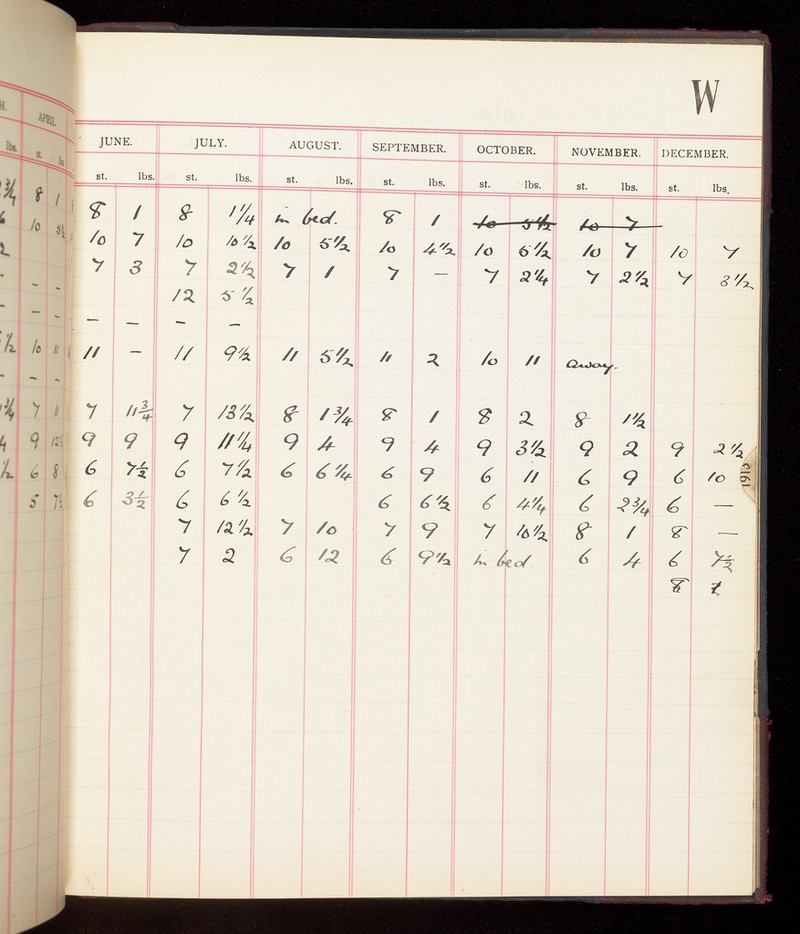 W
H. APRIL. JUNE. JULY. AUGUST. SEPTEMBER. OCTOBER. NOVEMBER. DECEMBER.
lbs. st. lbs. st. lbs. st. lbs. st. lbs. st. lbs. st. lbs. st. lbs. st. lbs.
3/4 8 1 8 1 8 1 1/4 in bed. 8 1 10 5 1/2 10 7
6 10 5 1/2 10 7 10 10 1/2 10 5 1/2 10 4 1/2 10 5 1/2 10 7 10 7
2 7 3 7 2 1/2 7 1 7 — 7 2 1/4 7 2 1/2 7 3 1/2
– – – 12 5 1/2
– – – – – – –
1/2 10 11 11 – 11 9 1/2 11 5 1/2 11 2 10 11 away.
– – –
3/4 7 11 7 11 3/4 7 13 1/2 8 1 3/4 8 1 8 2 8 1 1/2
4 9 12 1/2 9 9 9 11 1/4 9 4 9 4 9 3 1/2 9 2 9 2 1/2
1/2 6 8 6 7 1/2 6 7 1/2 6 6 1/4 6 9 6 11 6 9 6 10
5 7 1/2 6 3 1/2 6 6 1/2 6 6 1/2 6 4 1/4 6 2 3/4 6 —
7 12 1/2 7 10 7 9 7 10 1/2 8 1 8 —
7 2 6 12 6 9 1/2 in bed. 6 4 6 7 1/2
8
1913